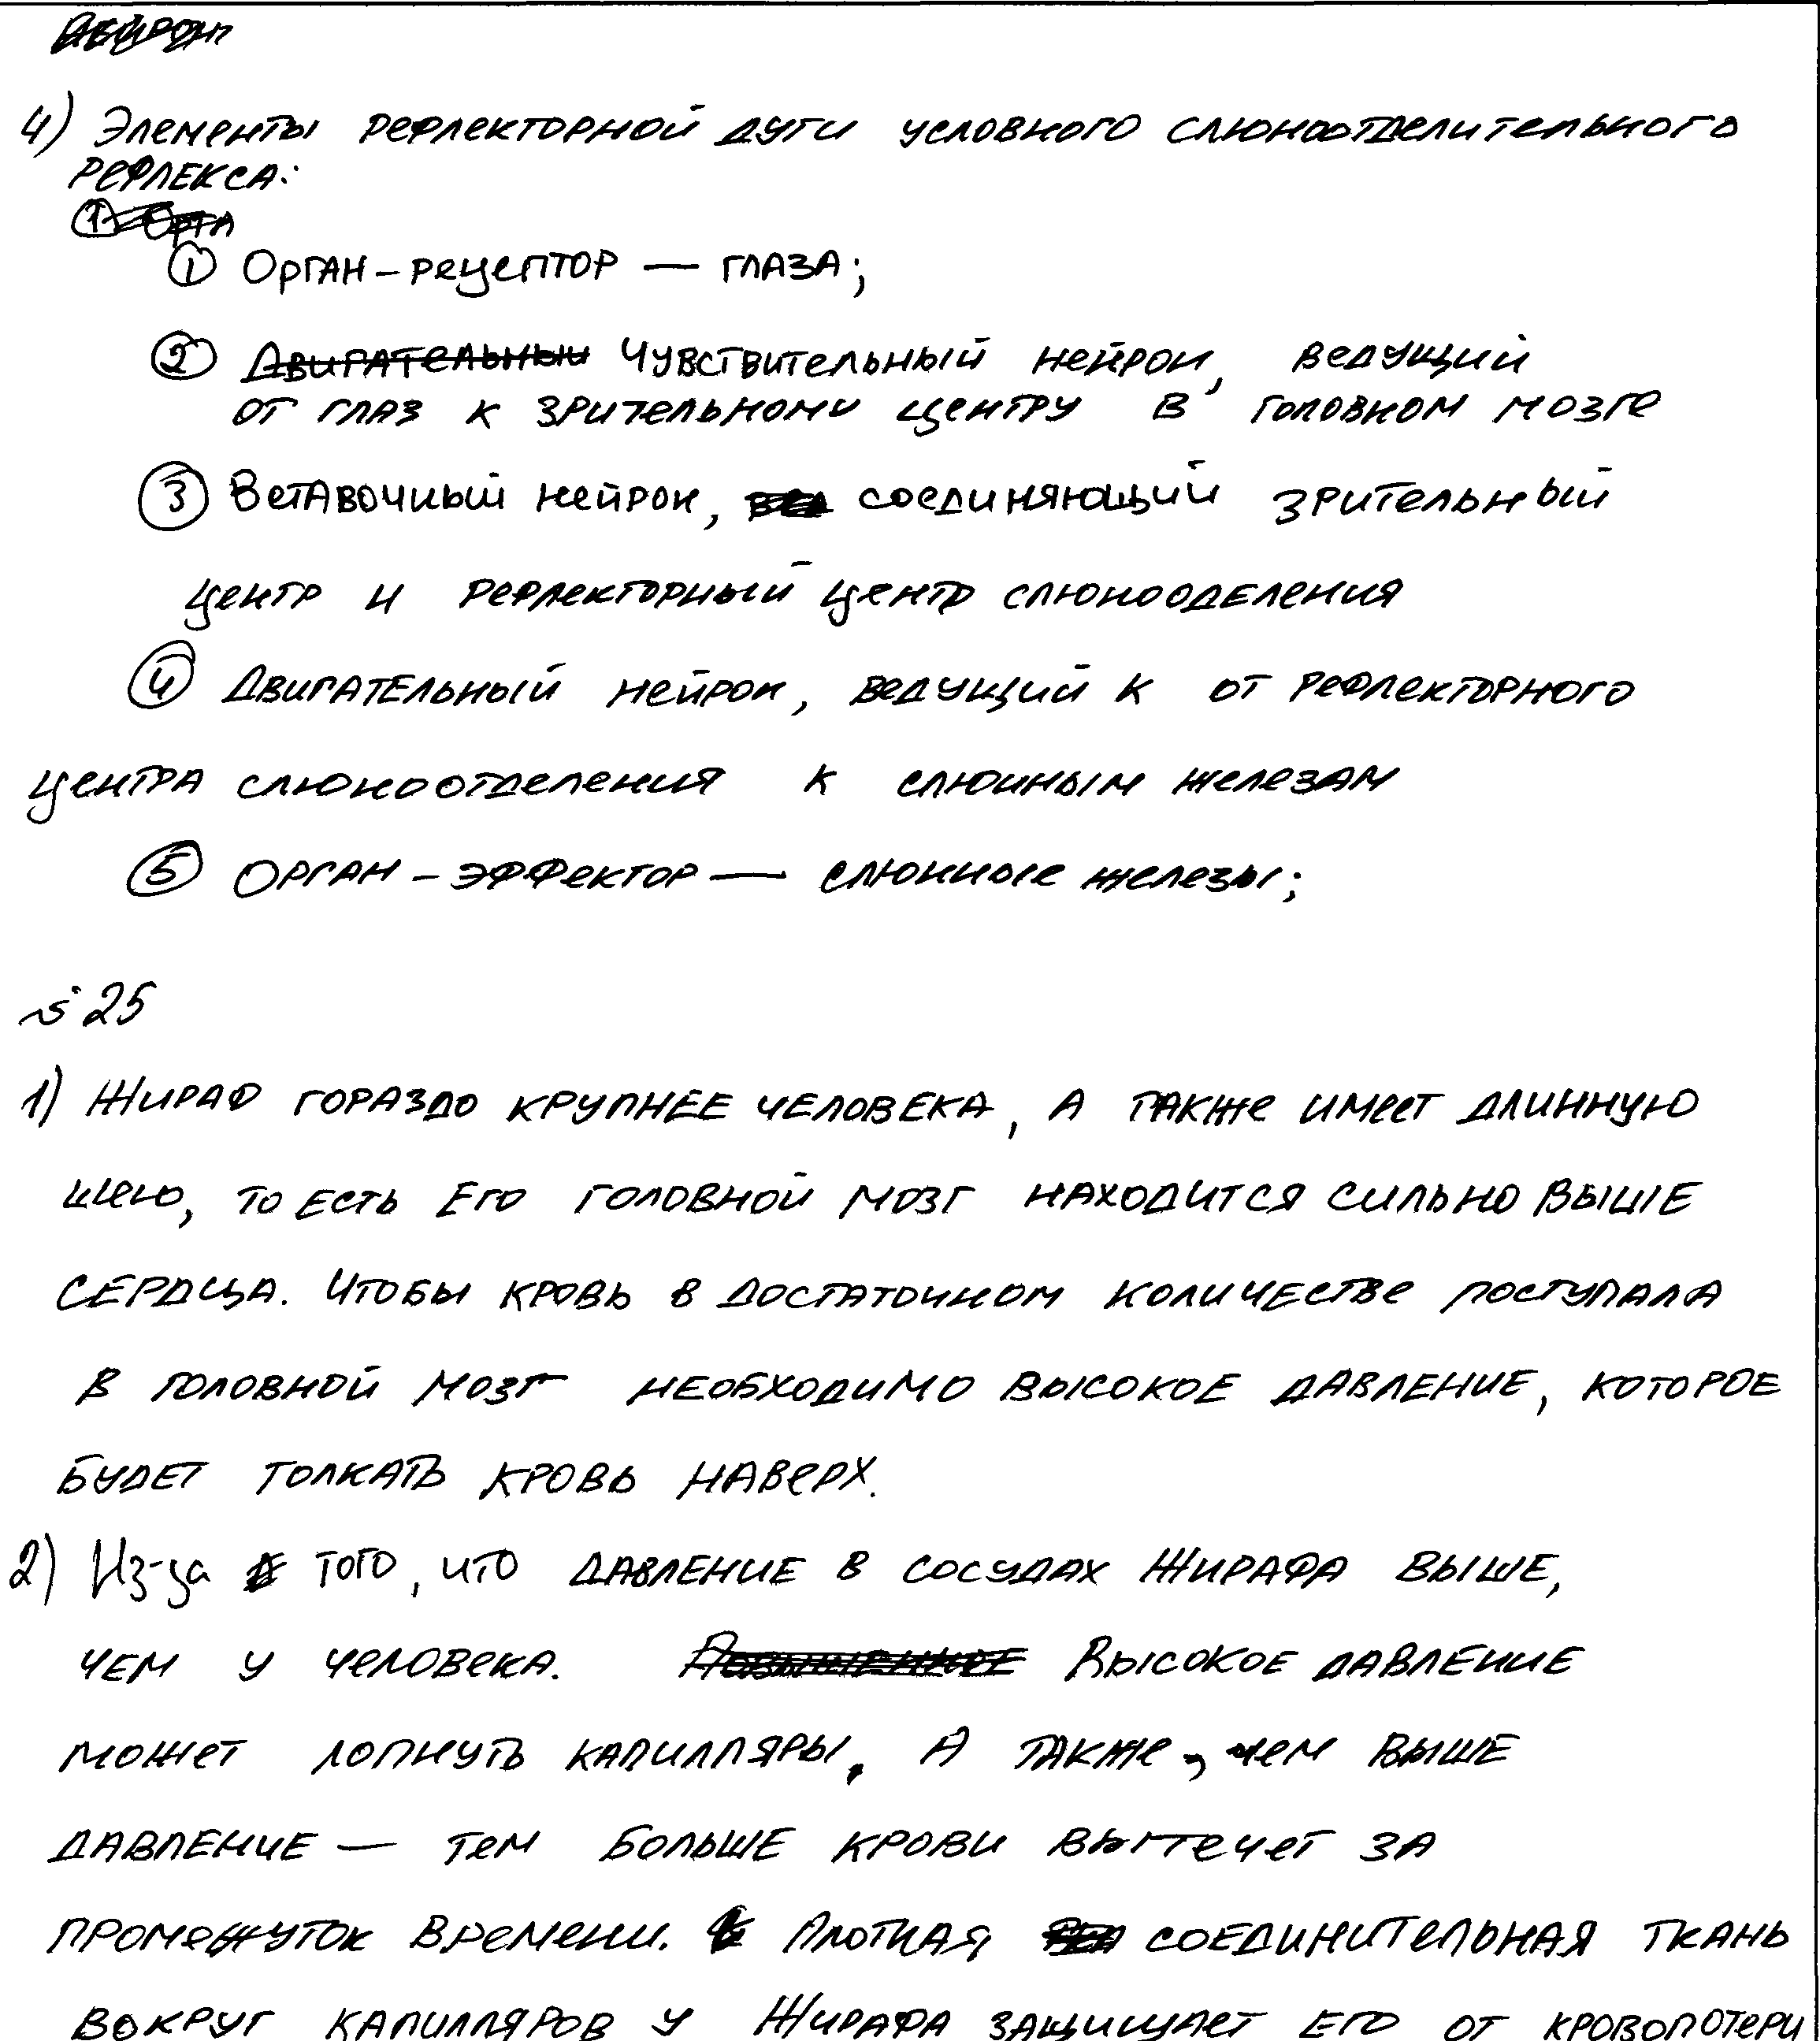 4) Элементы рефлекторной дуги условного слюноотделительного
рефлекса:
① Орган-рецептор — глаза;
② Двигательный Чувствительный нейрон, ведущий
от глаз к зрительному центру в головном мозге
③ Вставочный нейрон, соединяющий зрительный
центр и рефлекторный центр слюнооделения
④ Двигательный нейрон, ведущий к от рефлекторного
центра слюноотделения к слюнным железам
⑤ Орган-эффектор — слюнные железы;
№25
1) Жираф гораздо крупнее человека, а также имеет длинную
шею, то есть его головной мозг находится сильно выше
сердца. Чтобы кровь в достаточном количестве поступала
в головной мозг необходимо высокое давление, которое
будет толкать кровь наверх.
2) Из-за того, что давление в сосудах жирафа выше,
чем у человека. Повышенное Высокое давление
может лопнуть капилляры. А также, чем выше
давление — тем больше крови вытечет за
промежуток времени. Плотная соединительная ткань
вокруг капилляров у жирафа защищает его от кровопотери